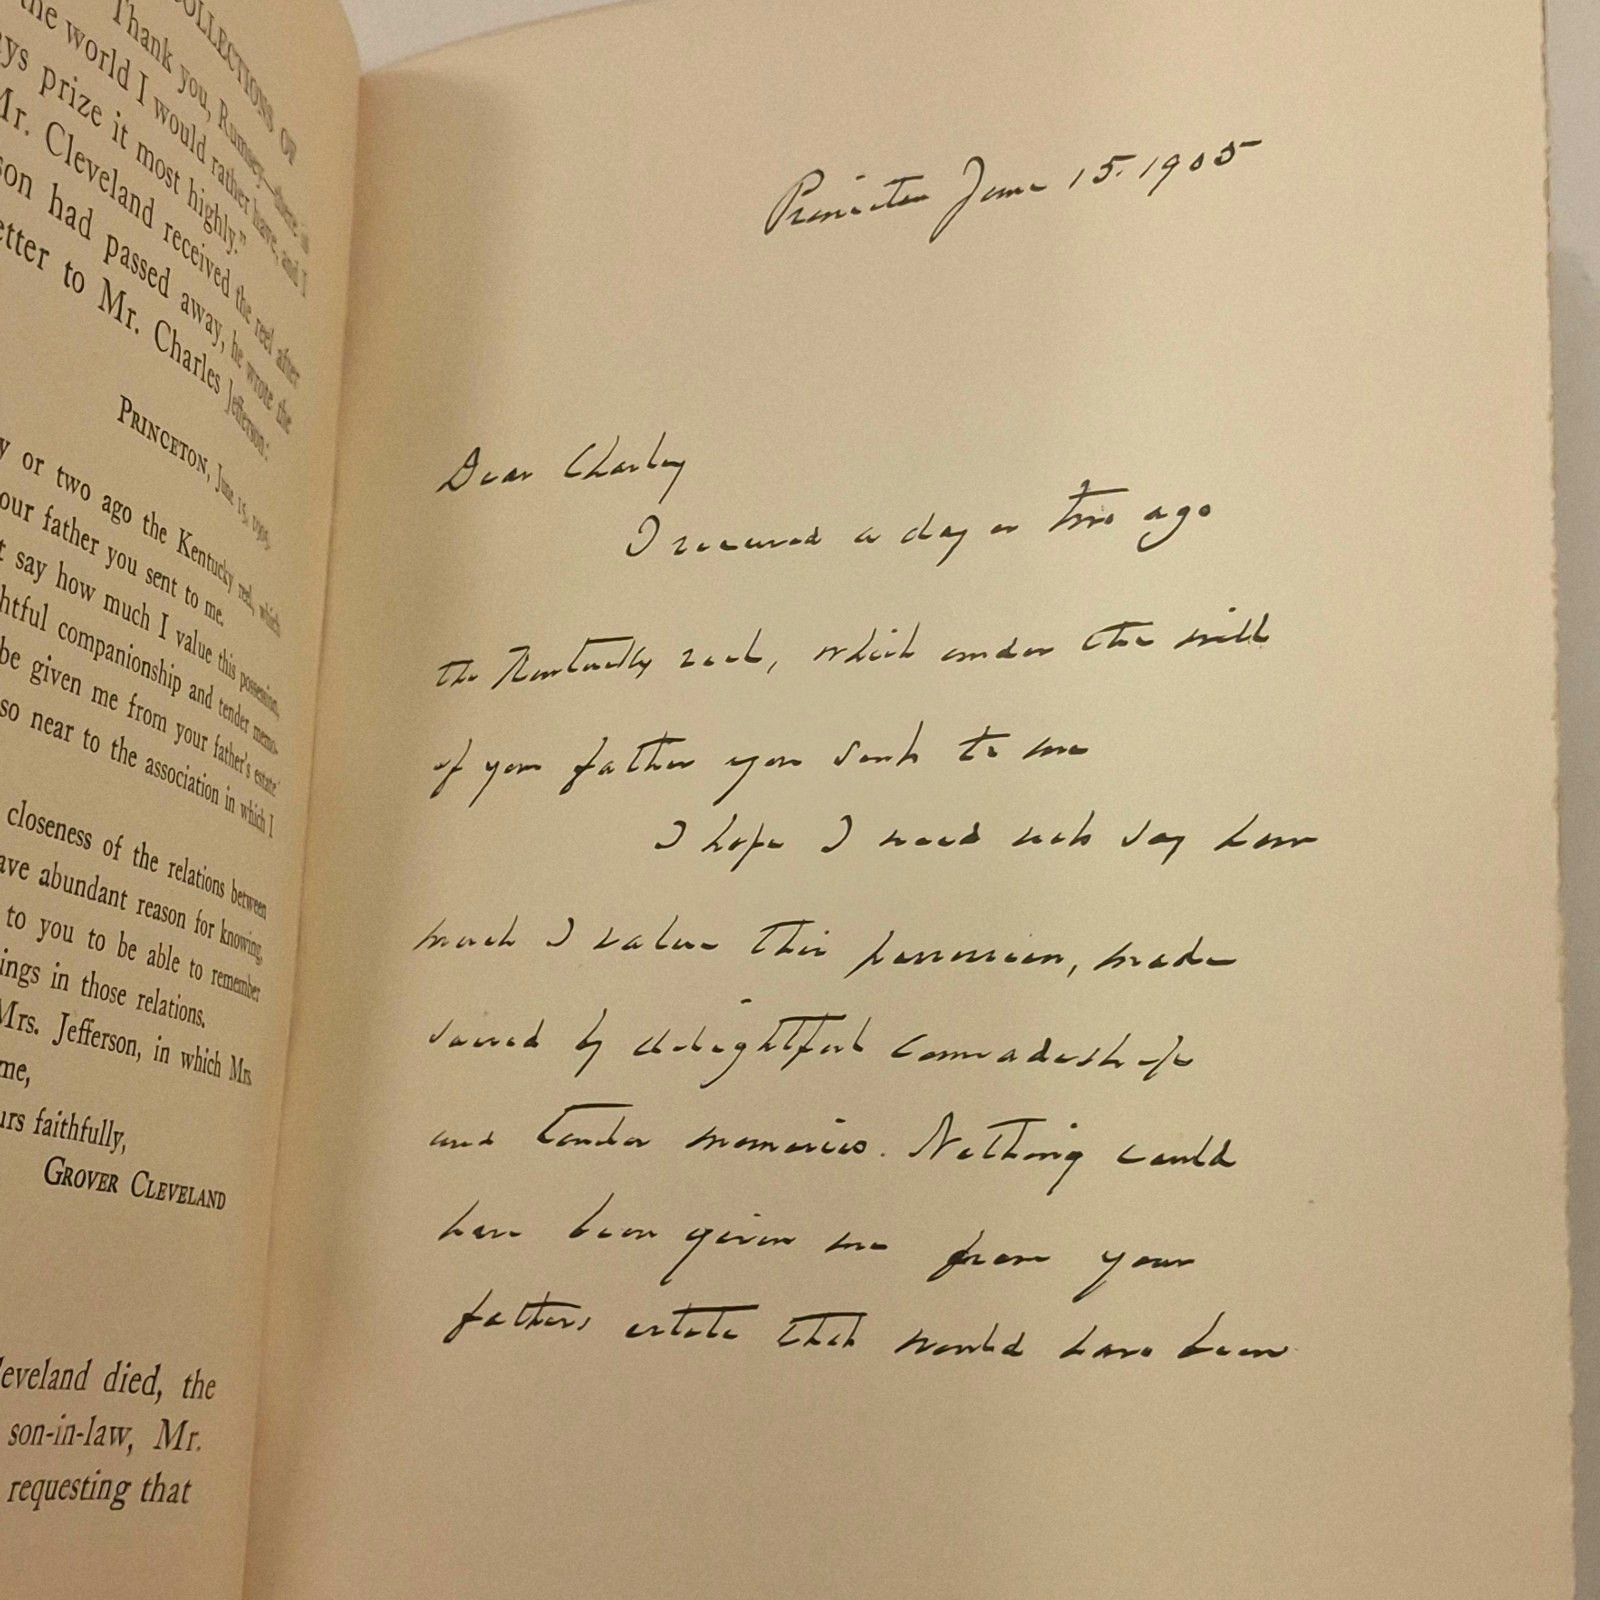 COLLECTIONS OF
Thank you, Rumsey—there is
the world I would rather have, and I
ays prize it most highly."
Mr. Cleveland received the reel after
son had passed away, he wrote the
etter to Mr. Charles Jefferson:
PRINCETON, June 15, 1905.
y or two ago the Kentucky reel, which
our father you sent to me.
t say how much I value this possession,
htful companionship and tender memo-
be given me from your father's estate
so near to the association in which I
closeness of the relations between
ave abundant reason for knowing,
to you to be able to remember
ings in those relations.
Mrs. Jefferson, in which Mrs.
me,
urs faithfully,
GROVER CLEVELAND
leveland died, the
son-in-law, Mr.
requesting that
Princeton June 15. 1905
Dear Charley
I received a day or two ago
the Kentucky reel, which under the will
of your father you sent to me
I hope I need not say how
much I value this possession, made
sacred by delightful comradeship
and tender memories. Nothing could
have been given me from your
fathers estate that would have been